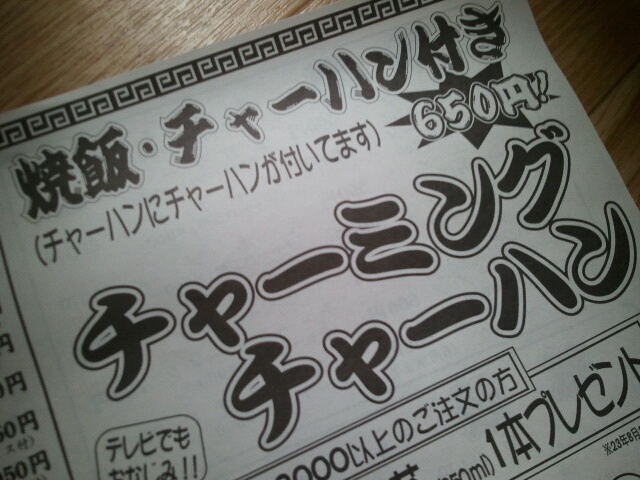 焼飯・チャーハン付き
650円!!
(チャーハンにチャーハンが付いてます)
チャーミング
チャーハン
000以上のご注文の方
1本プレゼント
テレビでも
おなじみ!!
円
円
50円
950円